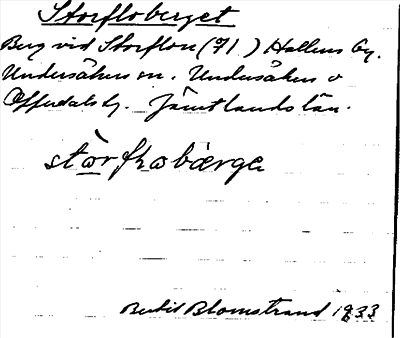 Storfloberget
Berg vid Storflon (71) Hallens by.
Undersåkers sn. Undersåkers o
Offerdals tg. Jämtlands län.
stòrfɫobærge
Bertil Blomstrand 1933